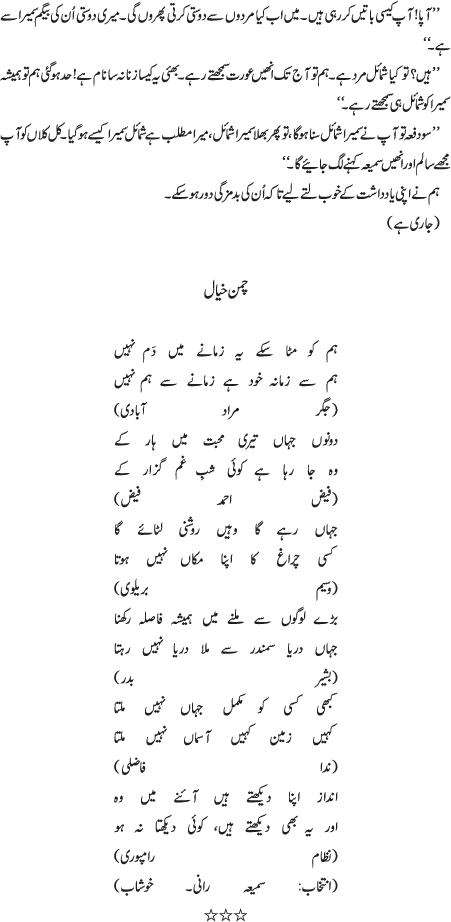 ’’آپا! آپ کیسی باتیں کررہی ہیں۔ میں اب کیا مردوں سے دوستی کرتی پھروں گی۔ میری دوستی اُن کی بیگم سمیرا سے
ہے۔‘‘
’’ہیں؟ تو کیا شمائل مرد ہے۔ ہم تو آج تک انھیں عورت سمجھتے رہے۔ بھئی یہ کیسا زنانہ سا نام ہے! حد ہوگئی ہم تو ہمیشہ
سمیرا کو شمائل ہی سمجھتے رہے۔‘‘
’’سو دفعہ تو آپ نے سمیرا شمائل سنا ہوگا، تو پھر بھلا سمیرا شمائل، میرا مطلب ہے شمائل سمیرا کیسے ہوگیا۔ کل کلاں کو آپ
مجھے سالم اور انھیں سمیعہ کہنے لگ جائیے گا۔‘‘
ہم نے اپنی یادداشت کے خوب لتے لیے تاکہ اُن کی بدمزگی دور ہوسکے۔
(جاری ہے)
چمن خیال
ہم کو مٹا سکے یہ زمانے میں دَم نہیں
ہم سے زمانہ خود ہے زمانے سے ہم نہیں
(جگر مراد آبادی)
دونوں جہاں تیری محبت میں ہار کے
وہ جا رہا ہے کوئی شبِ غم گزار کے
(فیض احمد فیض)
جہاں رہے گا وہیں روشنی لٹائے گا
کسی چراغ کا اپنا مکاں نہیں ہوتا
(وسیم بریلوی)
بڑے لوگوں سے ملنے میں ہمیشہ فاصلہ رکھنا
جہاں دریا سمندر سے ملا دریا نہیں رہتا
(بشیر بدر)
کبھی کسی کو مکمل جہاں نہیں ملتا
کہیں زمین کہیں آسماں نہیں ملتا
(ندا فاضلی)
انداز اپنا دیکھتے ہیں آئنے میں وہ
اور یہ بھی دیکھتے ہیں، کوئی دیکھتا نہ ہو
(نظام رامپوری)
(انتخاب: سمیعہ رانی۔ خوشاب)
☆☆☆